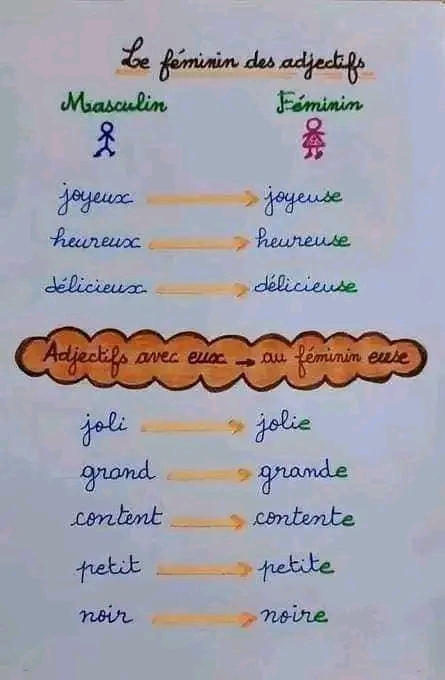 Le féminin des adjectifs
Masculin Féminin
joyeux → joyeuse
heureux → heureuse
délicieux → délicieuse
Adjectifs avec eux → au féminin euse
joli → jolie
grand → grande
content → contente
petit → petite
noir → noire